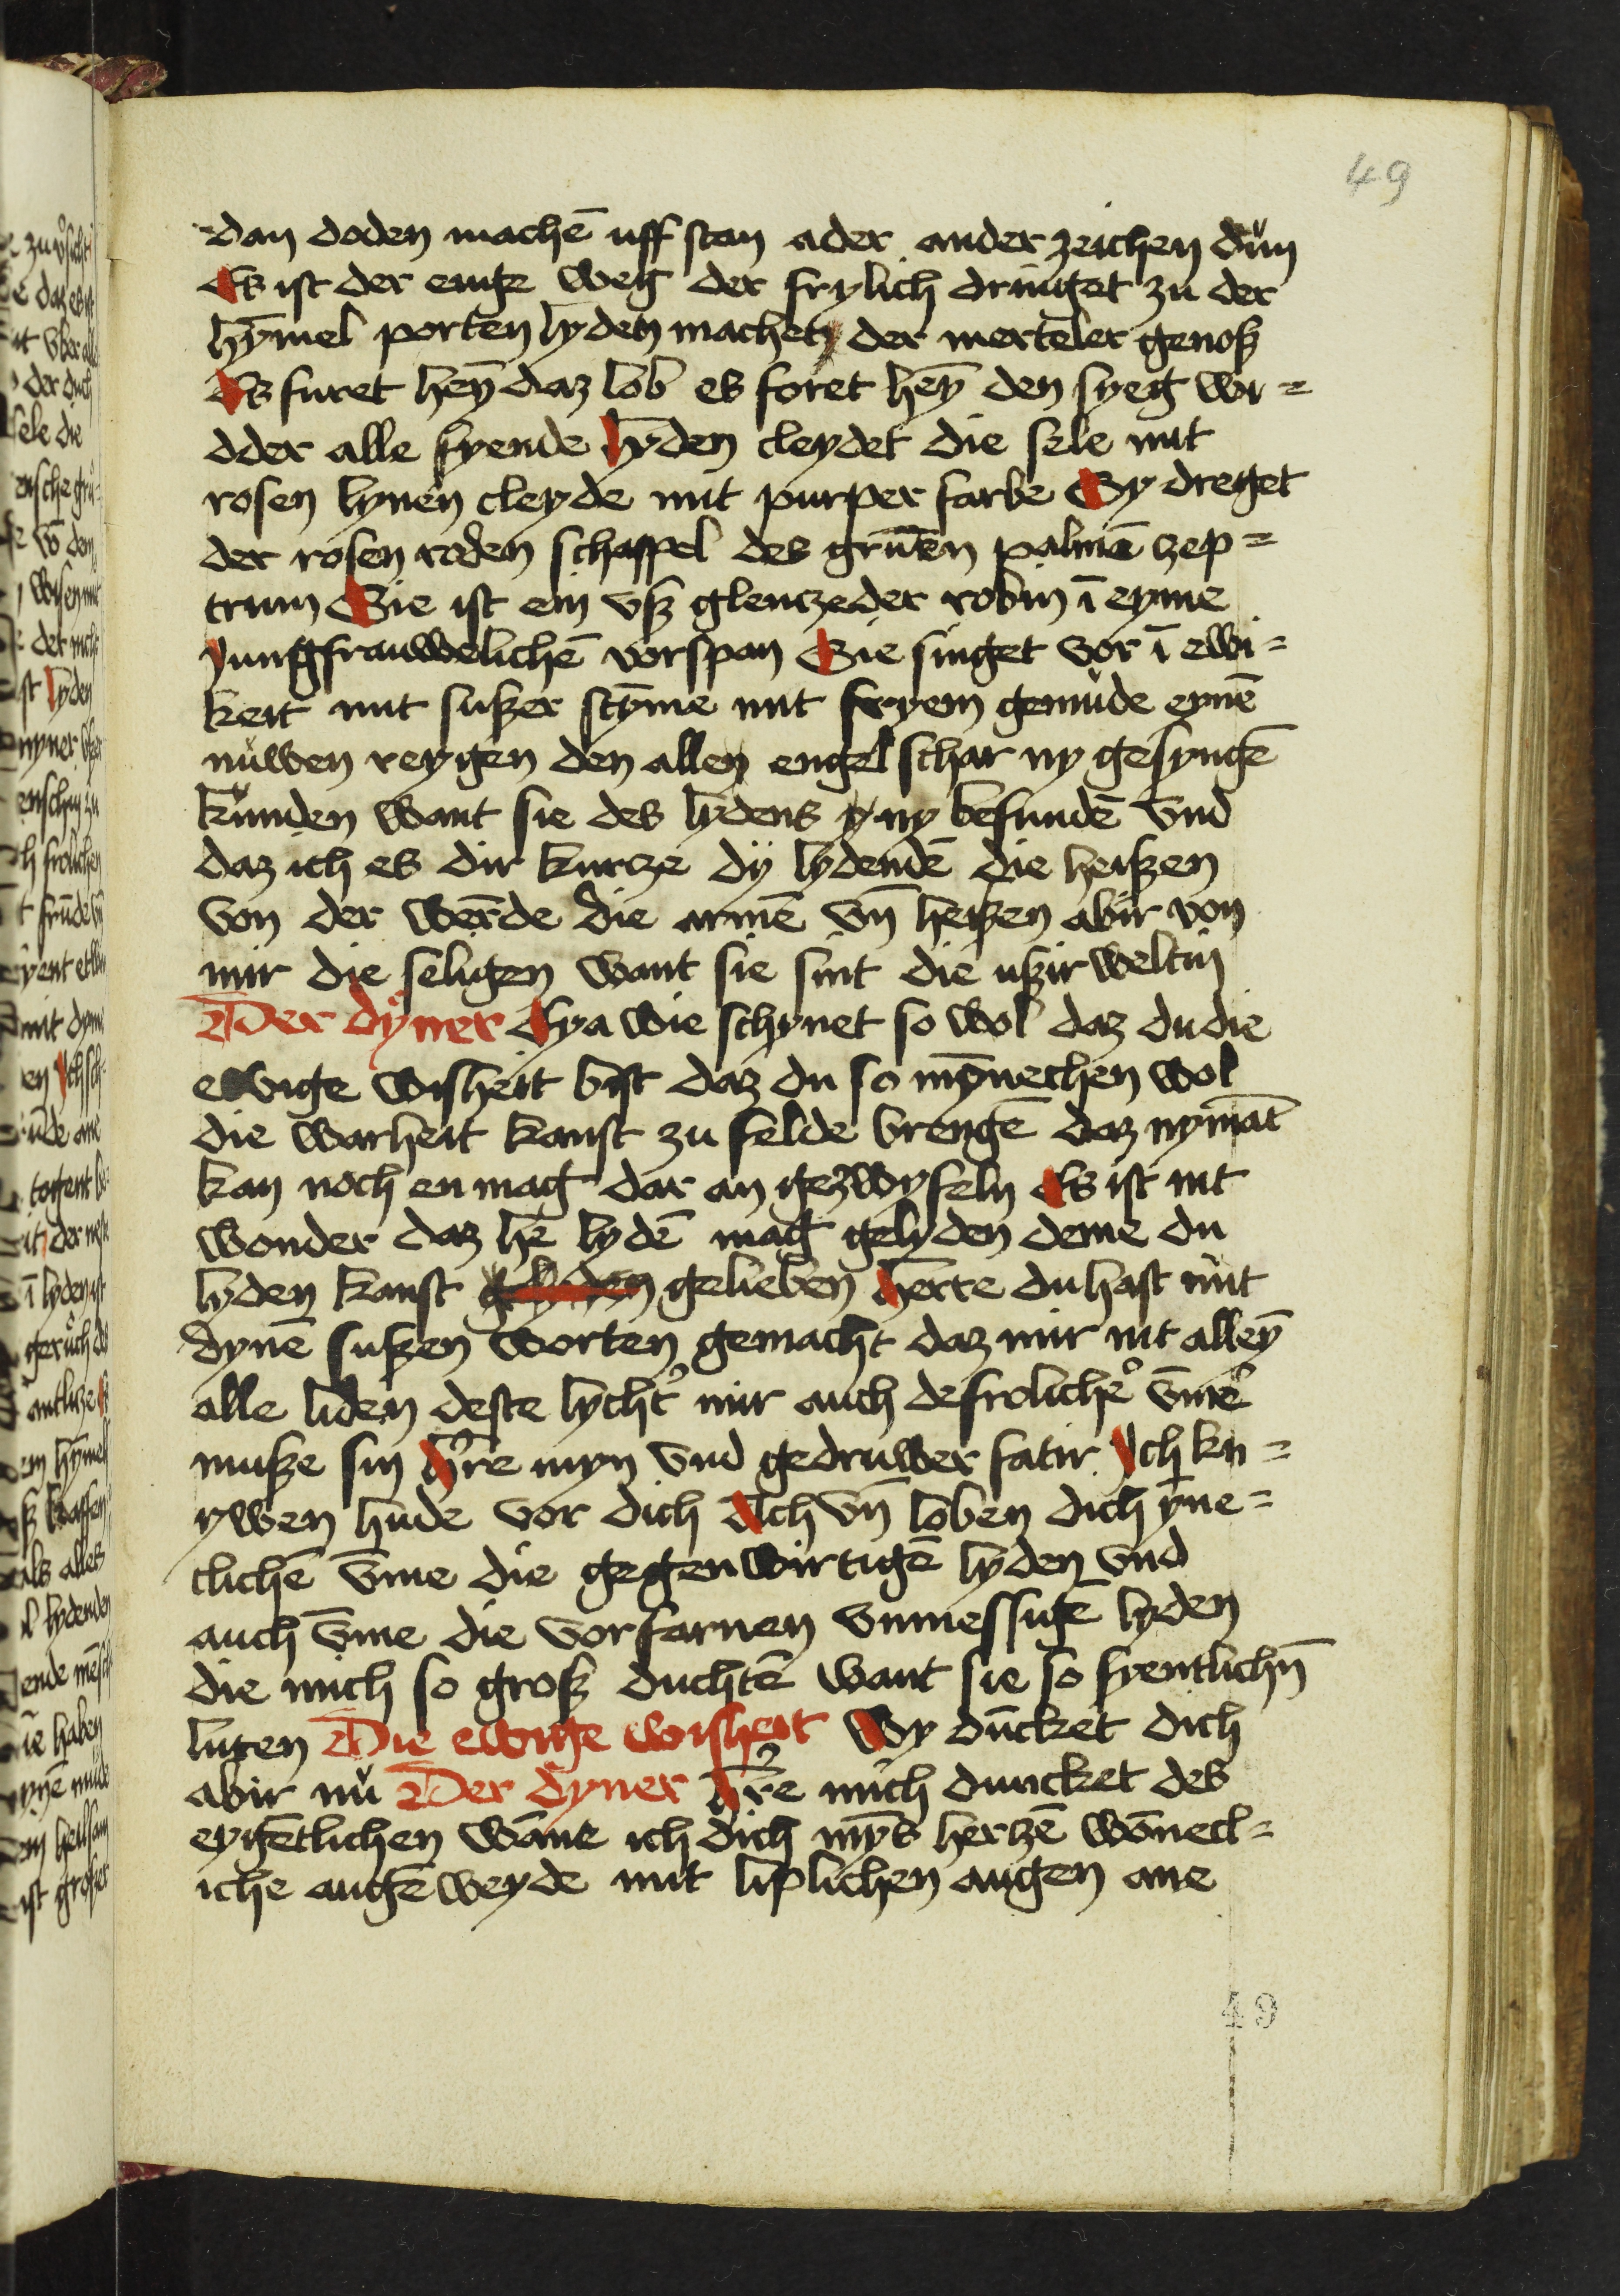 49
dan doden machē uff stan ader ander zeichen dün
Es ist der enge weg der frylich dringet zu der
hȳmel porten lyden machet der merteler genoß
Es furet heȳ daz lob es foret heȳ den syeg wi=
dder alle fyende lyden cleydet die sele mit
rosen lynen cleyde mit purper farbe Sy dreget
der rosen roden schappel des grūen palmē zep=
trum Sie ist ein vß glenczeder robin ī eyme
Jungfrauwelichē vorspan Sie singet vor ī ewi=
keit mit sußer stȳme mit fryem gemude eynē
nuwen reygen den allen engel schar ny gesyngē
kunden want sie des lydens ny befundē vnd
daz ich es dir kurcze dÿ lydendē die heißen
von der werde die armē vn̄ heißen abir von
mir die seligen want sie sint die ußir weltin
Der dyner Eya wie schynet so wol daz du die
ewige wisheit bist daz du so mȳnechen wol
die warheit kanst zu felde brengē daz nymāt
kan noch en mag dar an gezwyfeln Es ist nit
wonder daz hē lydē mag gelyden deme du
lyden kanst gelieben herre du hast mit
dynē sußen worten gemacht daz mir nit alleȳ
alle liden deste lycht᾽ mir auch defroliche᾽ v̄me
muße sin h᾽re myn vnd gedruwer fatir Ich kn=
ywen hude vor dich Ach vn̄ loben dich ȳne=
clichē v̄me die gegenwirtigē lyden vnd
auch v̄me die vorfarnen vnmessige lyden
die mich so groß duchtē want sie so fyentlichn̄
luten Die ewige wisheit Wy dūcket dich
abir nu Der dyner h᾽re mich duncket des
eygētlichen wāne ich dich mȳs herzē wōnecl=
iche augē weyde mit liplichen augen ane
49